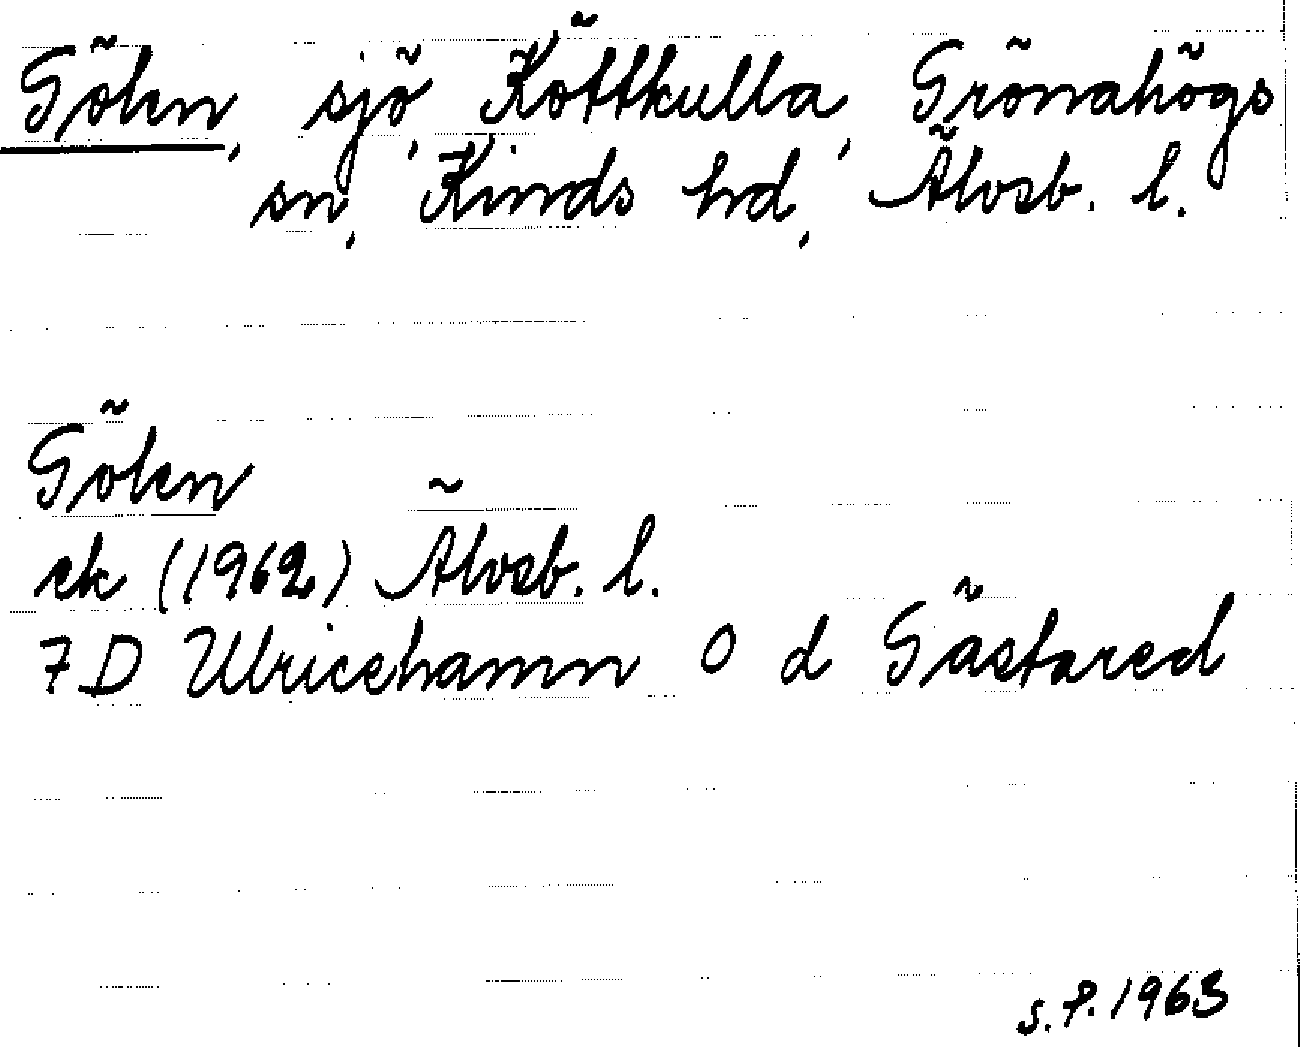 Gölen, sjö, Köttkulla, Grönahögs
sn, Kinds hd, Älvsb. l.
Gölen
ek (1962) Älvsb. l.
7D Ulricehamn O d Gästared
s.P. 1963